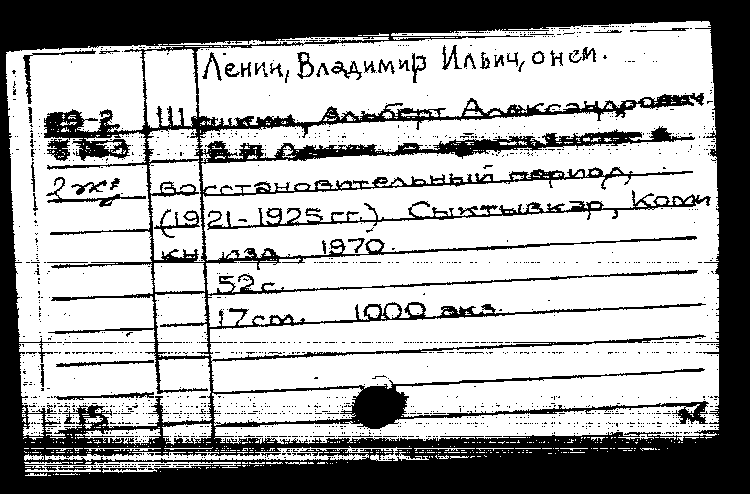 Ленин, Владимир Ильич, о нем.
Шишкин, Альберт Александрович
В И Ленин о крестьянстве в
2 экз восстановительный период,
(1921-1925 гг.). Сыктывкар, Коми
кн. изд., 1970.
52 с.
17 см. 1000 экз.